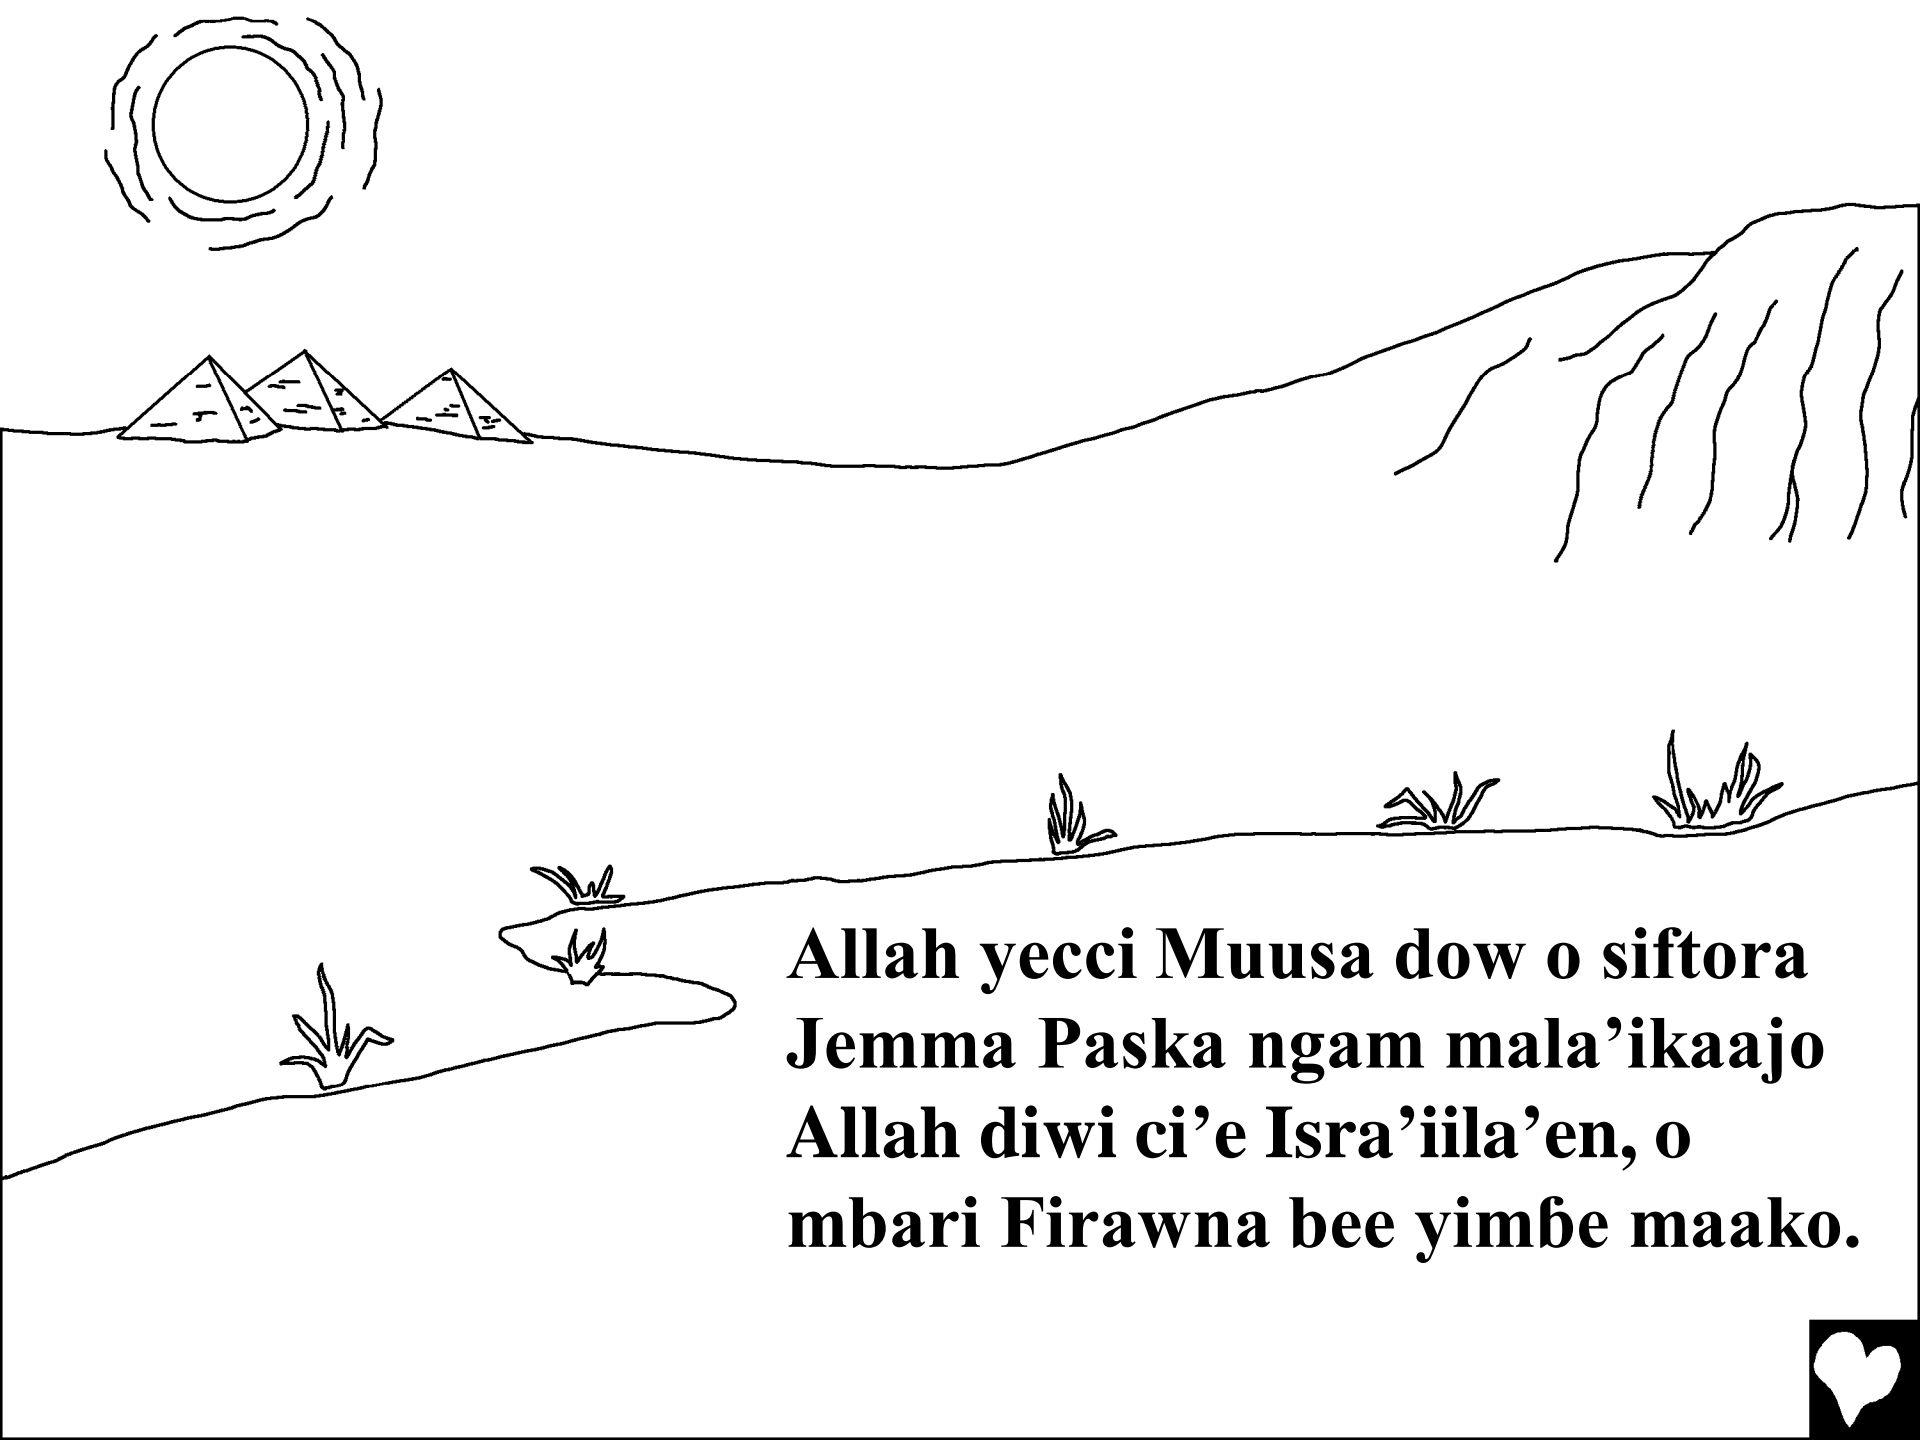 Allah yecci Muusa dow o siftora
Jemma Paska ngam mala’ikaajo
Allah diwi ci’e Isra’iila’en, o
mbari Firawna bee yimɓe maako.